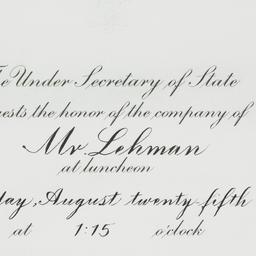 The Under Secretary of State
requests the honor of the company of
Mr. Lehman
at luncheon
day, August twenty fifth
at 1:15 o'clock